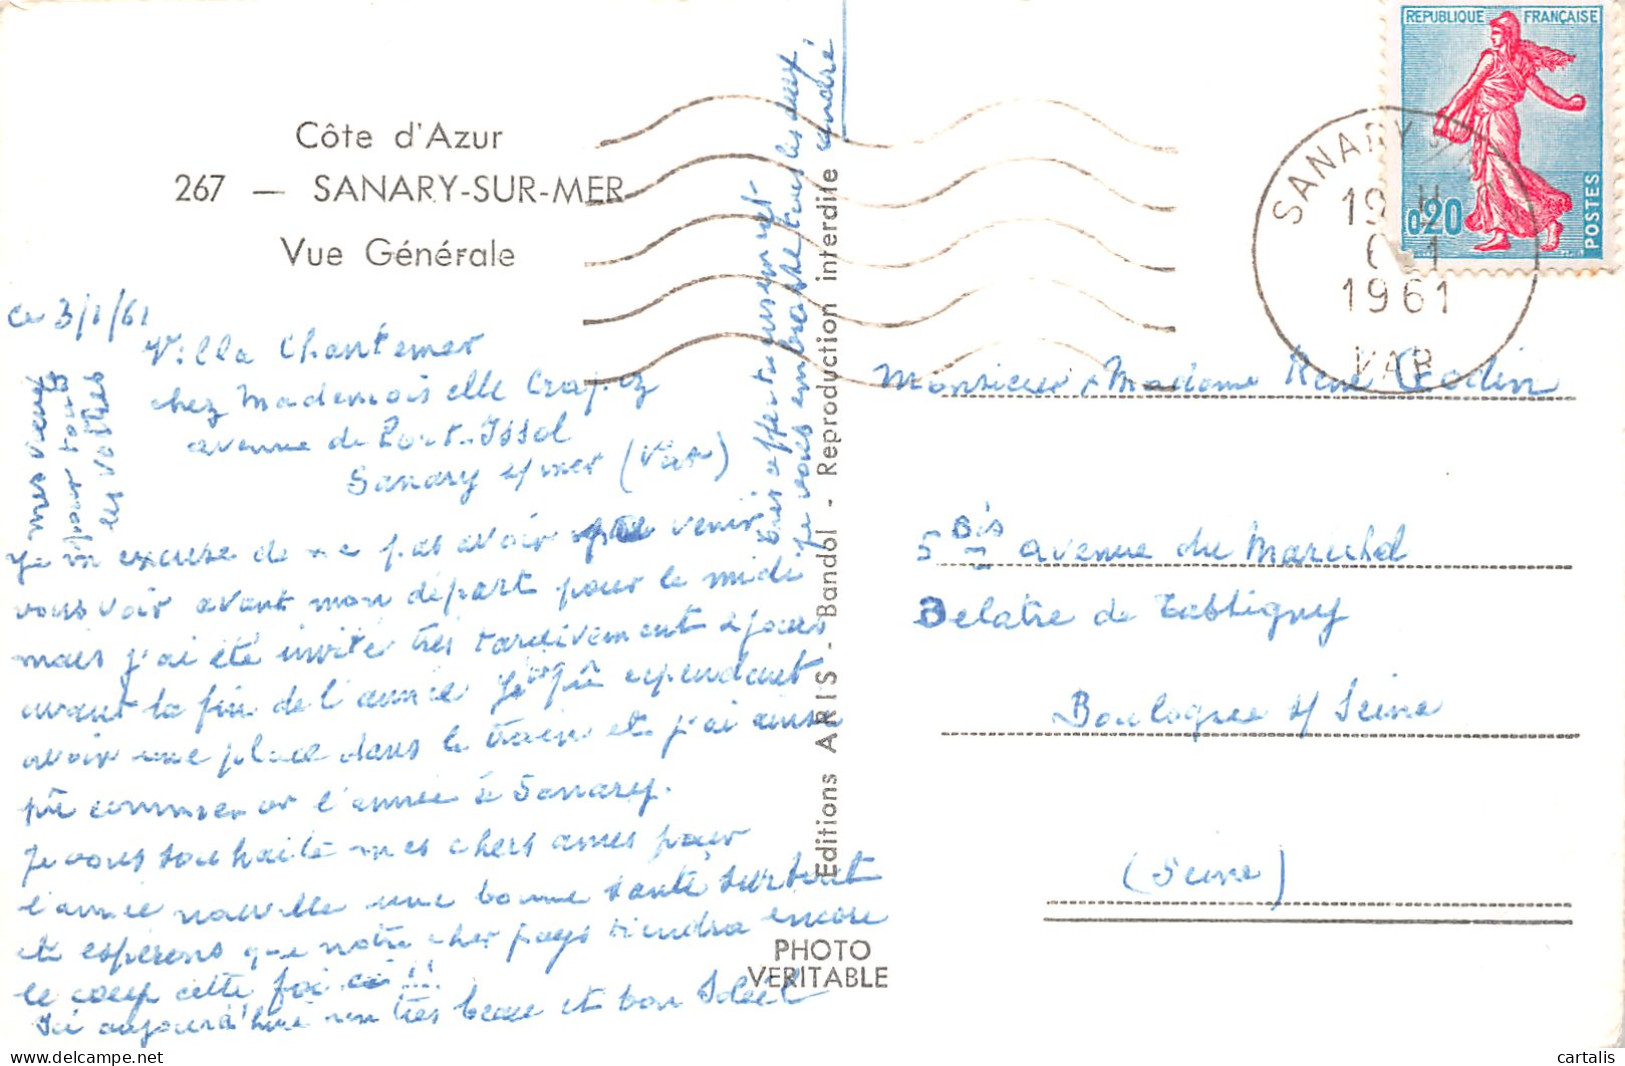 Côte d'Azur
267 — SANARY-SUR-MER
Vue Générale
Ce 3/1/61
Villa Chantemer
chez Mademoiselle Crapez
avenue de Port-Issol
Sanary s/mer (Var)
Je m'excuse de ne pas avoir pu venir
vous voir avant mon départ pour le midi
mais j'ai été invité très tardivement 2 jours
avant la fin de l'année J'ai pû cependant
avoir une place dans le train et j'ai ainsi
pû commencer l'année à Sanary.
Je vous souhaite mes chers amis pour
l'année nouvelle une bonne santé surtout
et espérons que notre cher pays tiendra encore
le coup cette fois ci !!!
Ici aujourd'hui un très beau et bon Soleil
mes vœux
pour tous
les vôtres
très affectueusement
je vous embrasse tous les deux
André
Editions ARIS - Bandol - Reproduction interdite
PHOTO
VERITABLE
REPUBLIQUE FRANÇAISE
0,20
POSTES
SANARY
19 H
6 1
1961
VAR
Monsieur & Madame René Godin
5 Bis avenue du Maréchal
Delatre de Tassigny
Boulogne s/ Seine
(Seine)
delcampe.net
cartalis